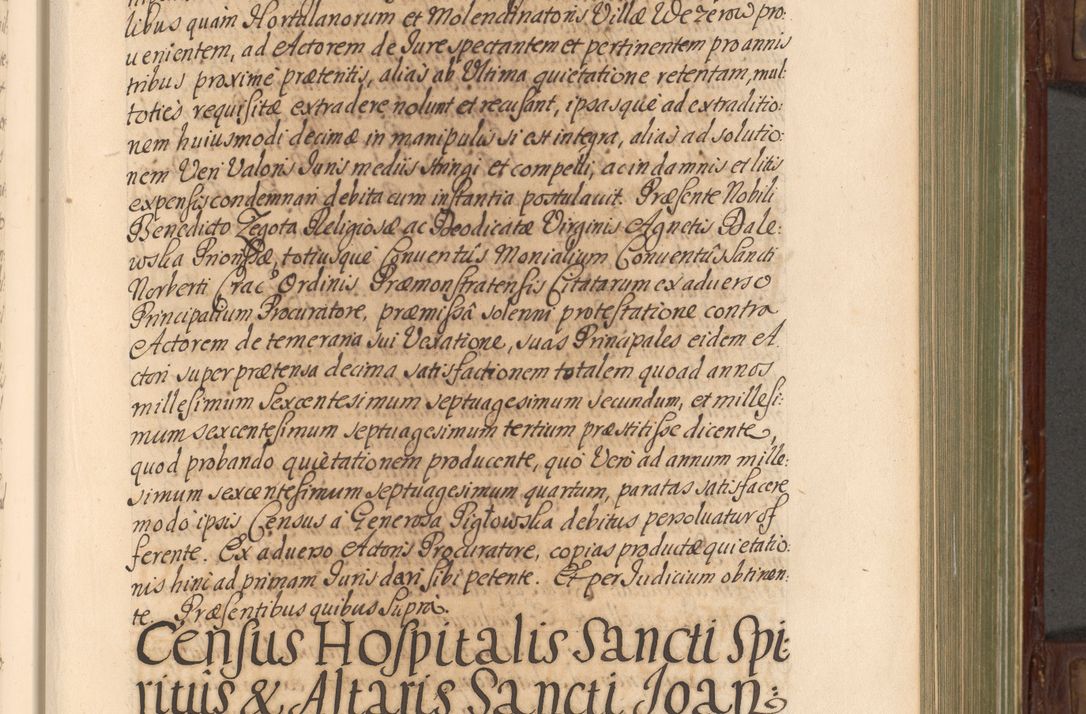 libus quam Hortulanorum et Molendinatoris Villæ Wezerow pro¬
uenientem, ad Actorem de Jure spectantem et pertinentem pro annis
tribus proximè præteritis, alias ab Ultima quietatione retentam, mul¬
toties requisitæ extradere nolunt et recusant, ipsasque ad extraditio¬
nem huiusmodi decimæ in manipulis si est integra, alias ad solutio¬
nem Veri Valoris Juris mediis stringi et compelli, ac in damnis et litis
expensis condemnari debita cum instantia postulauit. Præsente Nobili
Benedicto Zegota Religiosæ ac Deodicatæ Virginis Agnetis Dale¬
wska Priorissæ, totiusque Conuentûs Monialium Conventûs Sancti
Norberti Crac: Ordinis Præmonstratensis Citatarum ex aduerso
Principalium Procuratore, præmissâ solenni protestatione contra
Actorem de temeraria sui Vexatione, suas Principales eidem A¬
ctori super prætensa decima satisfactionem totalem quoad annos
millesimum sexcentesimum septuagesimum secundum, et millesi¬
mum sexcentesimum septuagesimum tertium præstitisse dicente,
quod probando quiètationem producente, quo Verò ad annum mille¬
simum sexcentesimum septuagesimum quartum, paratas satisfacere
modo ipsis Census a Generosa Pigłowska debitus persoluatur of
ferente. Ex aduerso Actoris Procuratore, copias productæ quietatio¬
nis hinc ad primam Juris dari sibi petente. Et per Judicium obtinen¬
te. Præsentibus quibus Suprà.
Census Hospitalis Sancti Spi¬
ritus & Altaris Sancti Joan¬